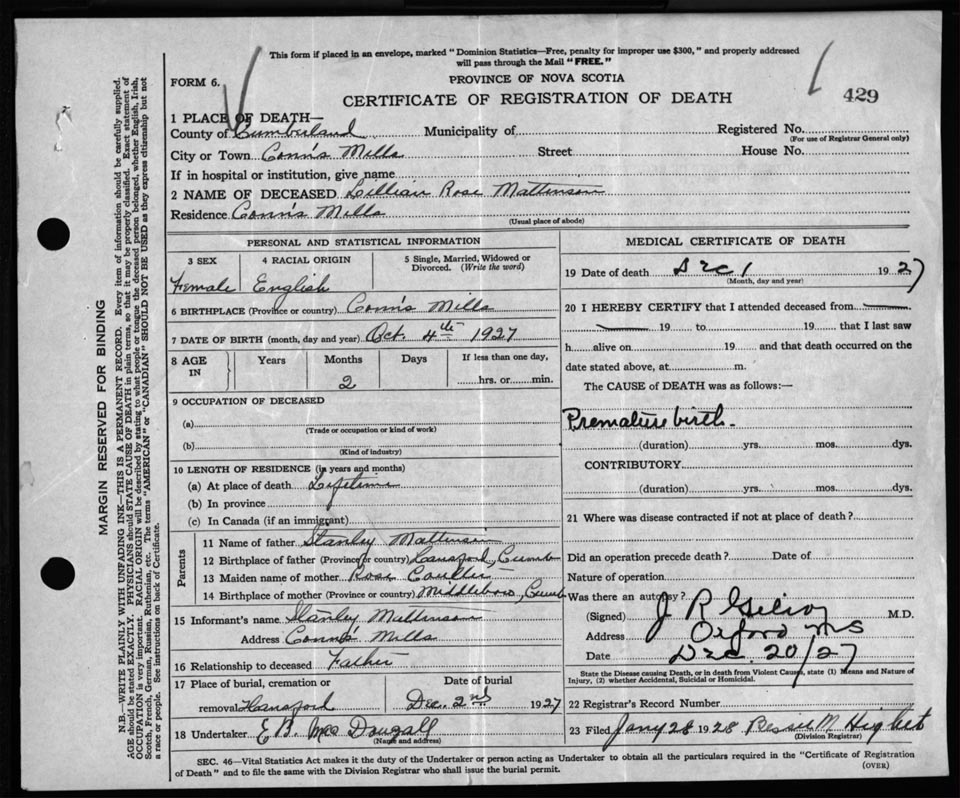 This form if placed in an envelope, marked "Dominion Statistics—Free, penalty for improper use $300," and properly addressed
will pass through the Mail "FREE."
FORM 6.
PROVINCE OF NOVA SCOTIA
CERTIFICATE OF REGISTRATION OF DEATH
429
1 PLACE OF DEATH—
County of Cumberland Municipality of Registered No.
(For use of Registrar General only)
City or Town Conn's Mills Street House No.
If in hospital or institution, give name
2 NAME OF DECEASED Lillian Rose Mattinson
Residence Conn's Mills
(Usual place of abode)
PERSONAL AND STATISTICAL INFORMATION
3 SEX 4 RACIAL ORIGIN 5 Single, Married, Widowed or
Divorced. (Write the word)
Female English
6 BIRTHPLACE (Province or country) Conn's Mills
7 DATE OF BIRTH (month, day and year) Oct. 4th 1927
8 AGE IN Years Months Days If less than one day,
2 hrs. or min.
9 OCCUPATION OF DECEASED
(a)
(Trade or occupation or kind of work)
(b)
(Kind of industry)
10 LENGTH OF RESIDENCE (in years and months)
(a) At place of death Lifetime
(b) In province
(c) In Canada (if an immigrant)
Parents
11 Name of father Stanley Mattinson
12 Birthplace of father (Province or country) Hansford, Cumb
13 Maiden name of mother Rose Coulter
14 Birthplace of mother (Province or country) Middleboro, Cumb
15 Informant's name Stanley Mattinson
Address Conn's Mills
16 Relationship to deceased Father
17 Place of burial, cremation or Date of burial
removal Hansford Dec. 2nd 1927
18 Undertaker E.B. MacDougall
(Name and address)
MEDICAL CERTIFICATE OF DEATH
19 Date of death Dec 1 1927
(Month, day and year)
20 I HEREBY CERTIFY that I attended deceased from
19 to 19 that I last saw
h alive on 19 and that death occurred on the
date stated above, at m.
The CAUSE of DEATH was as follows:—
Premature birth.
(duration) yrs. mos. dys.
CONTRIBUTORY
(duration) yrs. mos. dys.
21 Where was disease contracted if not at place of death?
Did an operation precede death? Date of
Nature of operation
Was there an autopsy?
(Signed) J R Gilroy M.D.
Address Oxford NS
Date Dec. 20/27
State the Disease causing Death, or in death from Violent Causes, state (1) Means and Nature of
Injury, (2) whether Accidental, Suicidal or Homicidal.
22 Registrar's Record Number
23 Filed Jany 28 1928 Bessie M. Higbet
(Division Registrar)
SEC. 46—Vital Statistics Act makes it the duty of the Undertaker or person acting as Undertaker to obtain all the particulars required in the "Certificate of Registration
of Death" and to file the same with the Division Registrar who shall issue the burial permit.
(OVER)
MARGIN RESERVED FOR BINDING
N.B.—WRITE PLAINLY WITH UNFADING INK—THIS IS A PERMANENT RECORD. Every item of information should be carefully supplied.
AGE should be stated EXACTLY. PHYSICIANS should STATE CAUSE OF DEATH in plain terms, so that it may be properly classified. Exact statement of
OCCUPATION is very important. RACIAL ORIGIN will be described by stating to what people or tongue the deceased person belonged, whether English, Irish,
Scotch, French, German, Russian, Ruthenian, etc. The terms "AMERICAN" or "CANADIAN" SHOULD NOT BE USED as they express citizenship but not
a race or people. See instructions on back of Certificate.